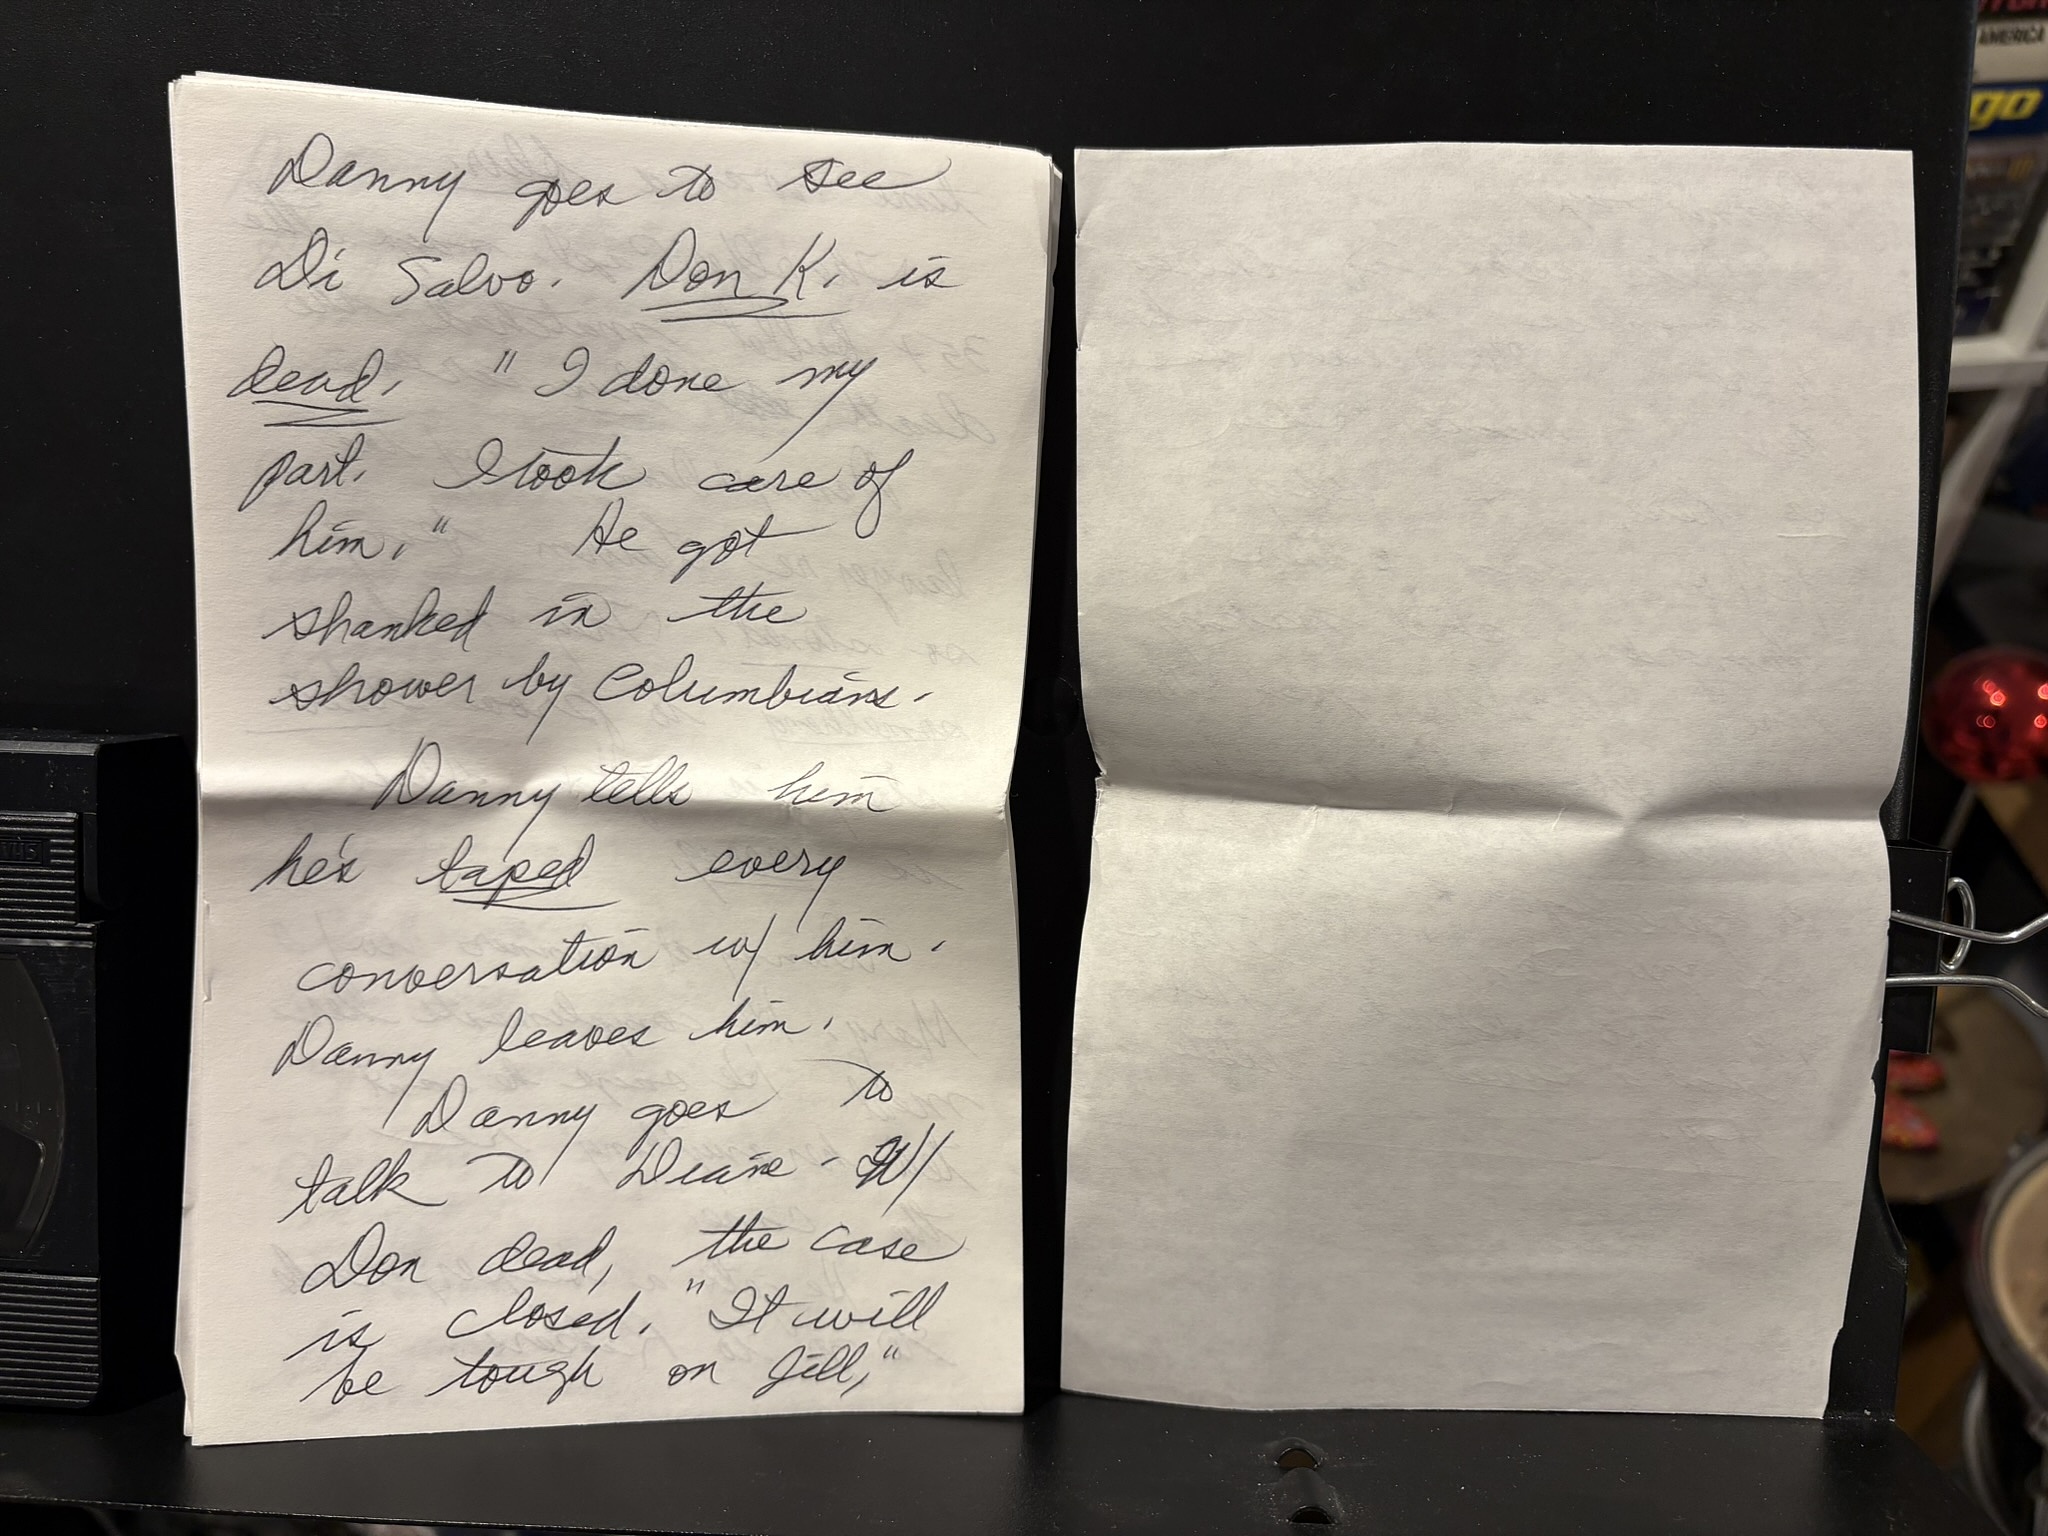 Danny goes to see
Di Salvo. Don K. is
dead. "I done my
part. I took care of
him." He got
shanked in the
shower by Columbians.
Danny tells him
he's taped every
conversation w/ him.
Danny leaves him.
Danny goes to
talk to Diane - W/
Don dead, the case
is closed. "It will
be tough on Jill,"
AMERICA
go
VHS